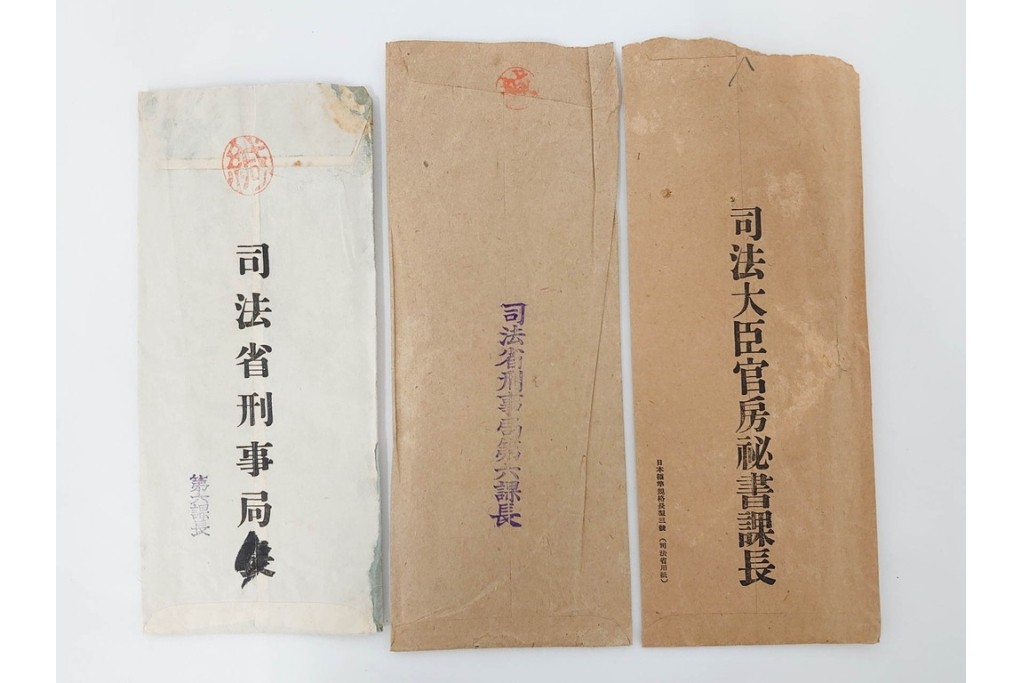 司法省刑事局
第六課長
司法省刑事局第六課長
司法大臣官房祕書課長
日本標準規格長型三號 (司法省用紙)